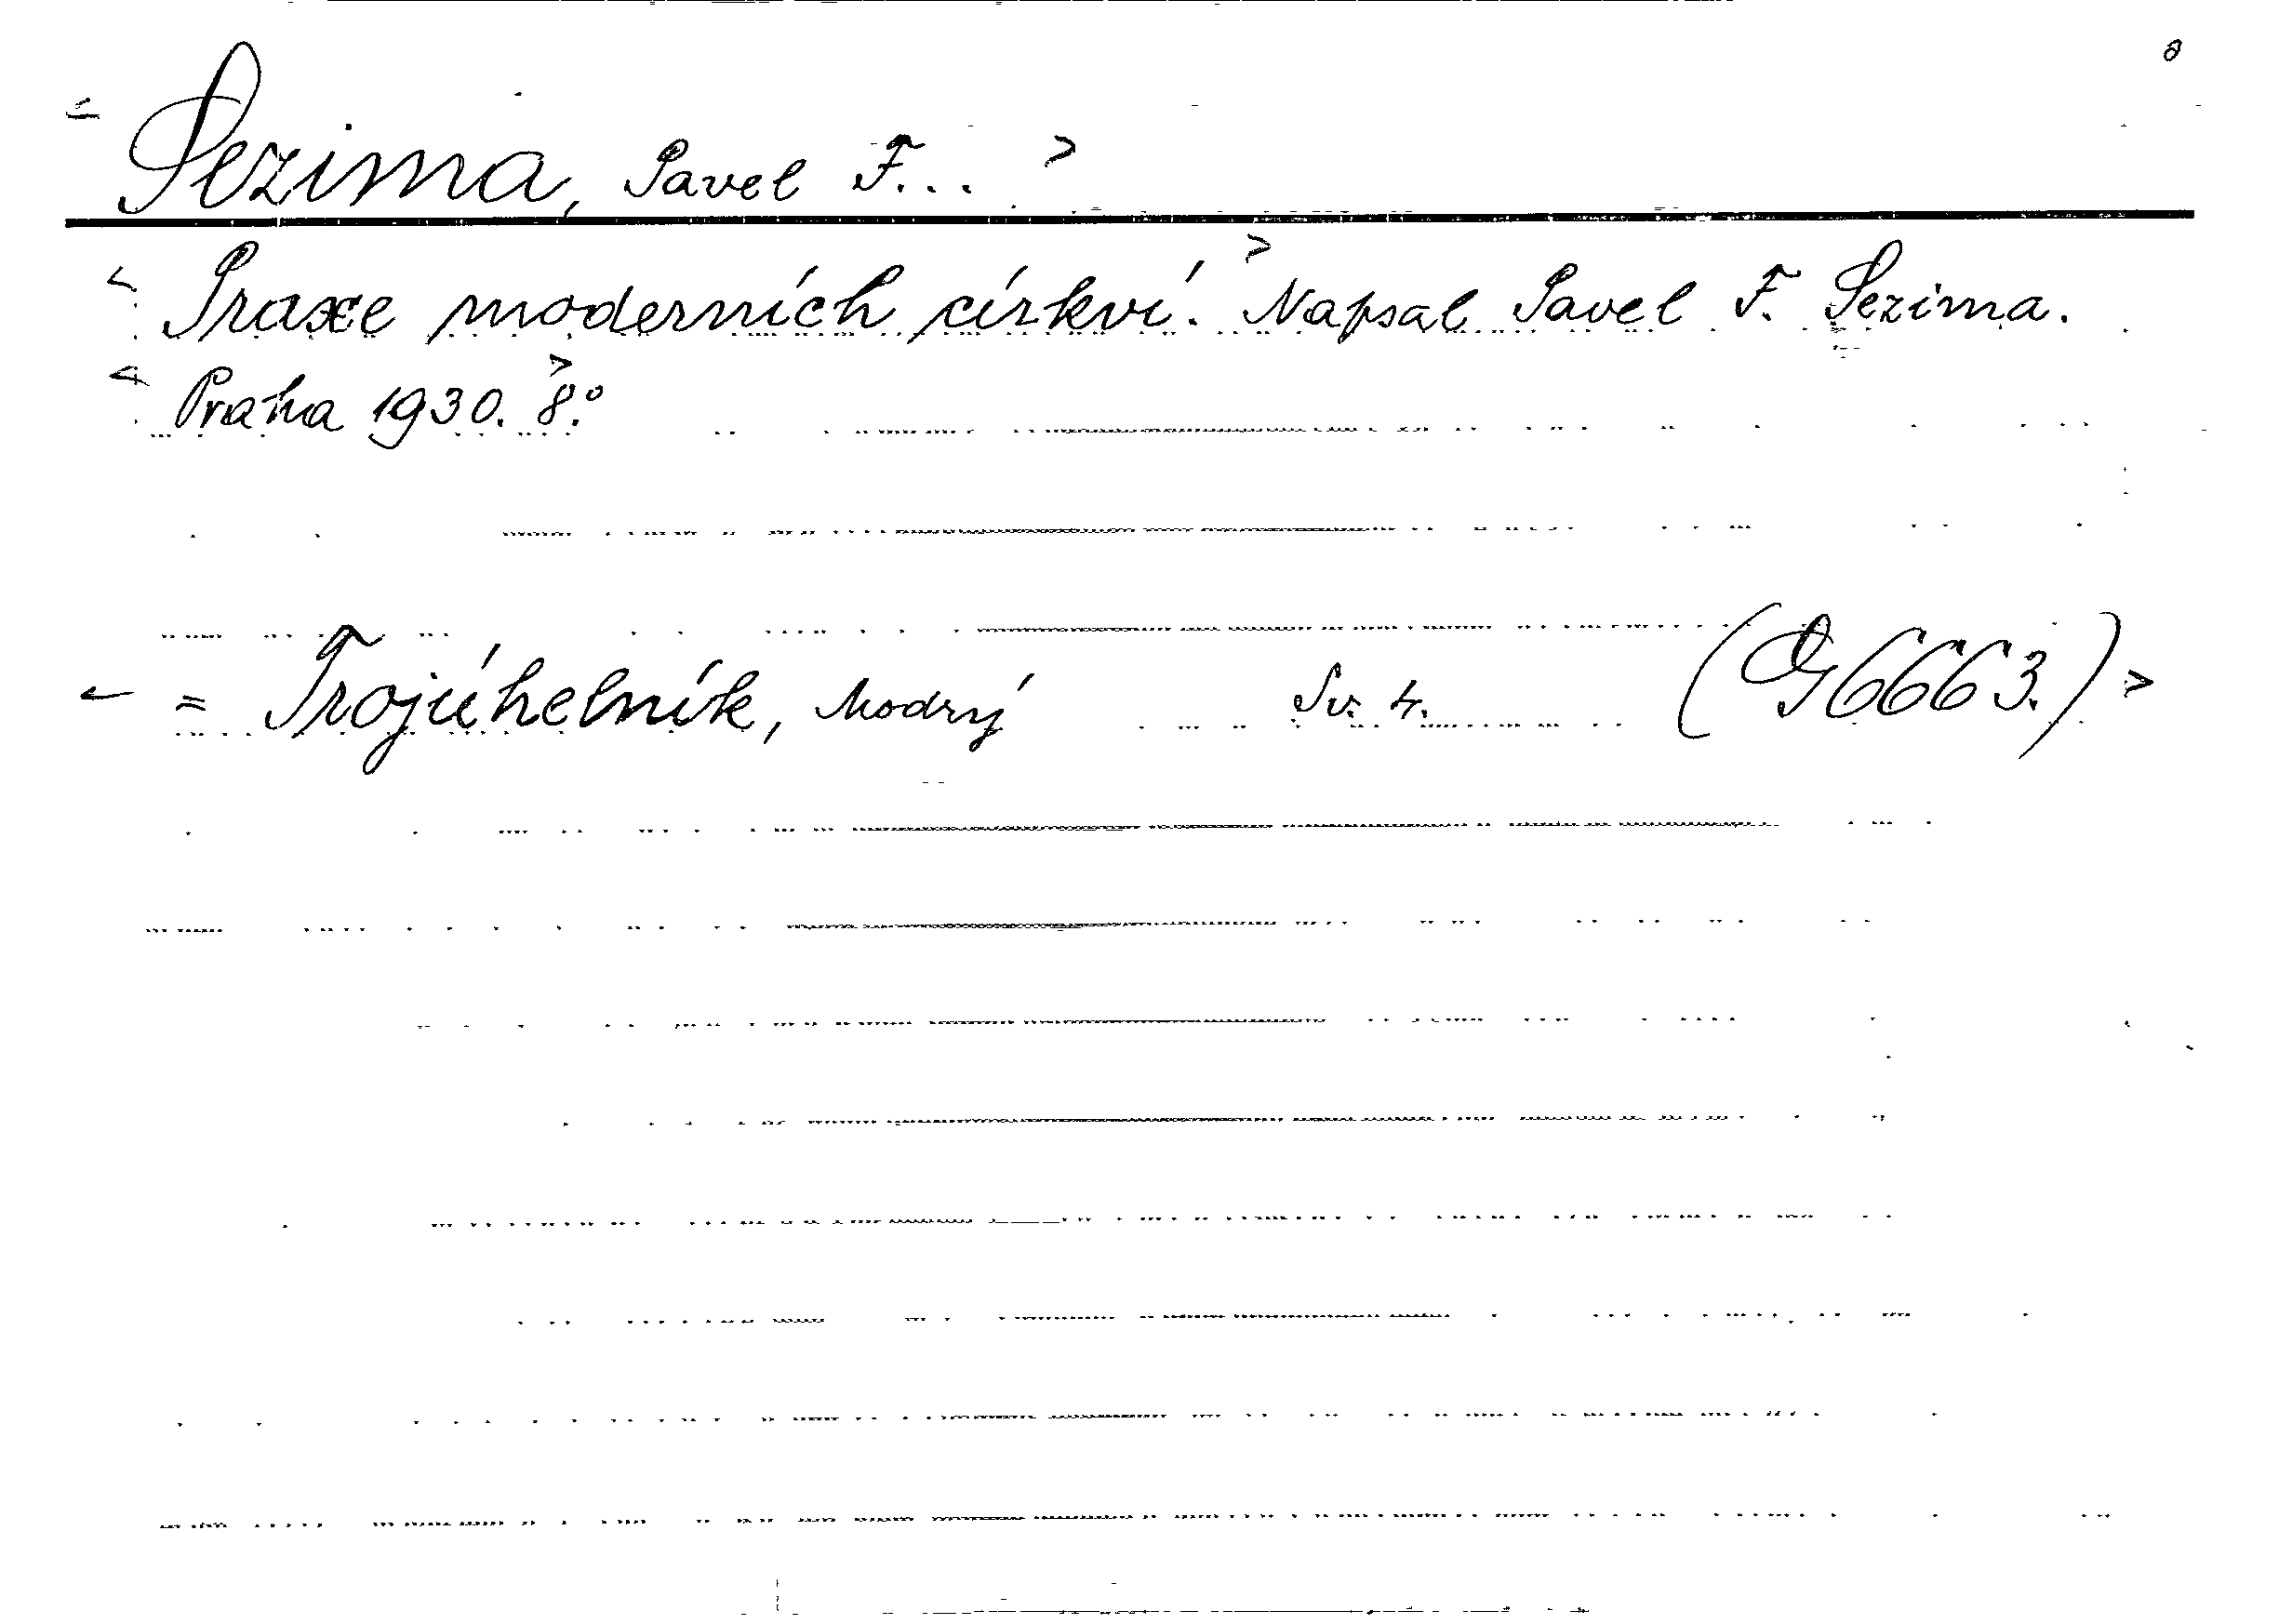 8
< Sezima, Pavel F... >
< Praxe moderních církví. > Napsal Pavel F. Sezima.
< Praha 1930. > 8.°
< = Trojúhelník, Modrý Sv. 4. (G 6663.) >